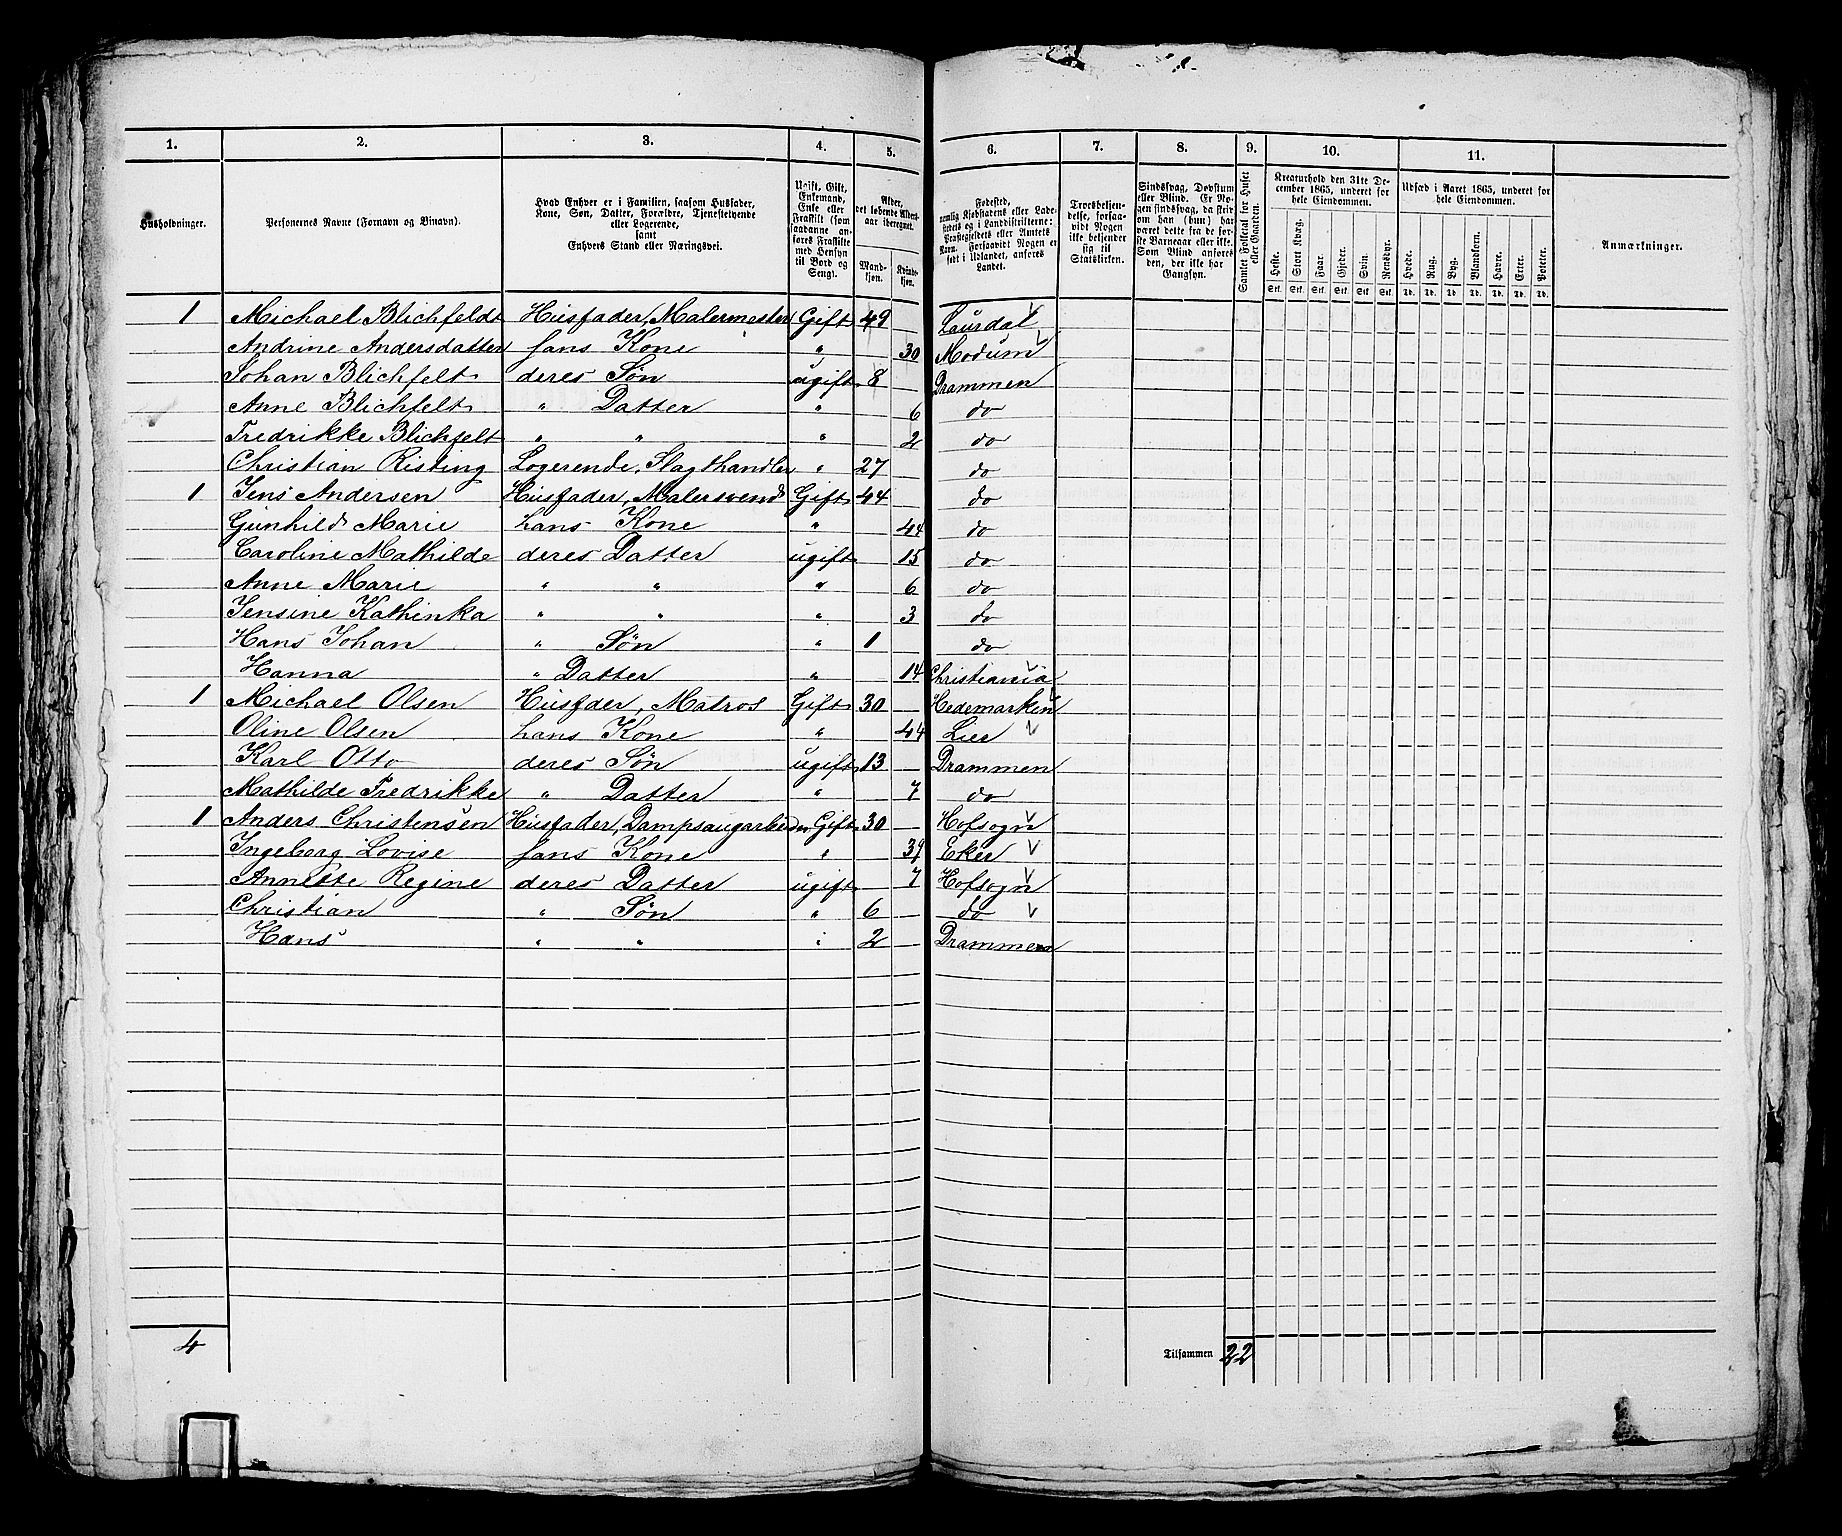 1. 2. 3. 4. 5. 6. 7. 8. 9. 10. 11.
Husholdninger.
Personernes Navne (Fornavn og Tilnavn).
Hvad Enhver er i Familien, saasom Husfader,
Kone, Søn, Datter, Forældre, Tjenestetyende
eller Logerende,
samt
Enhvers Stand eller Næringsvei.
Ugift, Gift,
Enkemand,
Enke eller
Fraskilt (som
saadanne an-
føres Fraskilte
med Hensyn
til Bord og
Seng).
Alder,
det løbende Alders-
aar iberegnet.
Mand-
kjøn.
Kvinde-
kjøn.
Fødested,
nemlig Kjøbstadens eller Lade-
stedets og i Landdistrikterne:
Præstegjeldets eller Amtets
Navn. Forsaavidt Nogen er
født i Udlandet, anføres
Landet.
Troesbekjen-
delse, forsaa-
vidt Nogen
ikke bekjender
sig til
Statskirken.
Sindssvag, Døvstum
eller Blind. Er No-
gen sindssvag, da skriv
om han (hun) har
været dette fra de før-
ste Barneaar eller ikke.
Som Blind anføres
den, der ikke har
Gangsyn.
Samlet Folketal for Huset
eller Gaarden.
Kreaturhold den 31te De-
cember 1865, underet for
hele Eiendommen.
Heste. Stort Kvæg. Faar. Gjeder. Svin. Rensdyr.
Stk. Stk. Stk. Stk. Stk. Stk.
Udsæd i Aaret 1865, underet for
hele Eiendommen.
Hvede. Rug. Byg. Blandkorn. Havre. Erter. Poteter.
Td. Td. Td. Td. Td. Td. Td.
Anmærkninger.
1 Michael Blichfeldt Husfader, Malermester Gift 49 Laurdal
Andrine Andersdatter hans Kone " 30 Modum
Johan Blichfelt deres Søn ugift 8 Drammen
Anne Blichfelt " Datter " 6 do
Fredrikke Blichfelt " " " 2 do
Christian Risting Logerende, Slagthandler " 27 do
1 Jens Andersen Husfader, Malersvend Gift 44 do
Gunhild Marie hans Kone " 44 do
Caroline Mathilde deres Datter ugift 15 do
Anne Marie " " " 6 do
Jensine Kathinka " " " 3 do
Hans Johan " Søn " 1 do
Hanna " Datter " 14 Christiania
1 Michael Olsen Husfder, Matros Gift 30 Hedemarken
Oline Olsen hans Kone " 44 Lier
Karl Otto deres Søn ugift 13 Drammen
Mathilde Fredrikke " Datter " 7 do
1 Anders Christensen Husfader, Dampsaugarbeider Gift 30 Hofsogn
Ingeborg Lovise hans Kone " 39 Eker
Annette Regine deres Datter ugift 7 Hofsogn
Christian " Søn " 6 do
Hans " " " 2 Drammen
4 Tilsammen 22